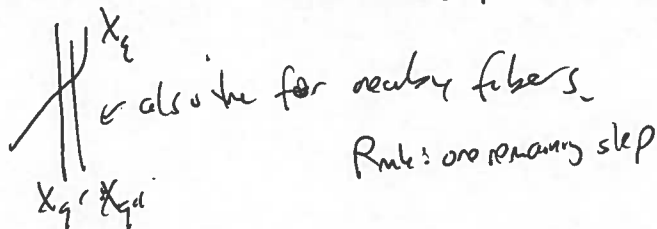 X_q
← also true for nearby fibers.
Rmk: one remaining step
X_q' X_q''